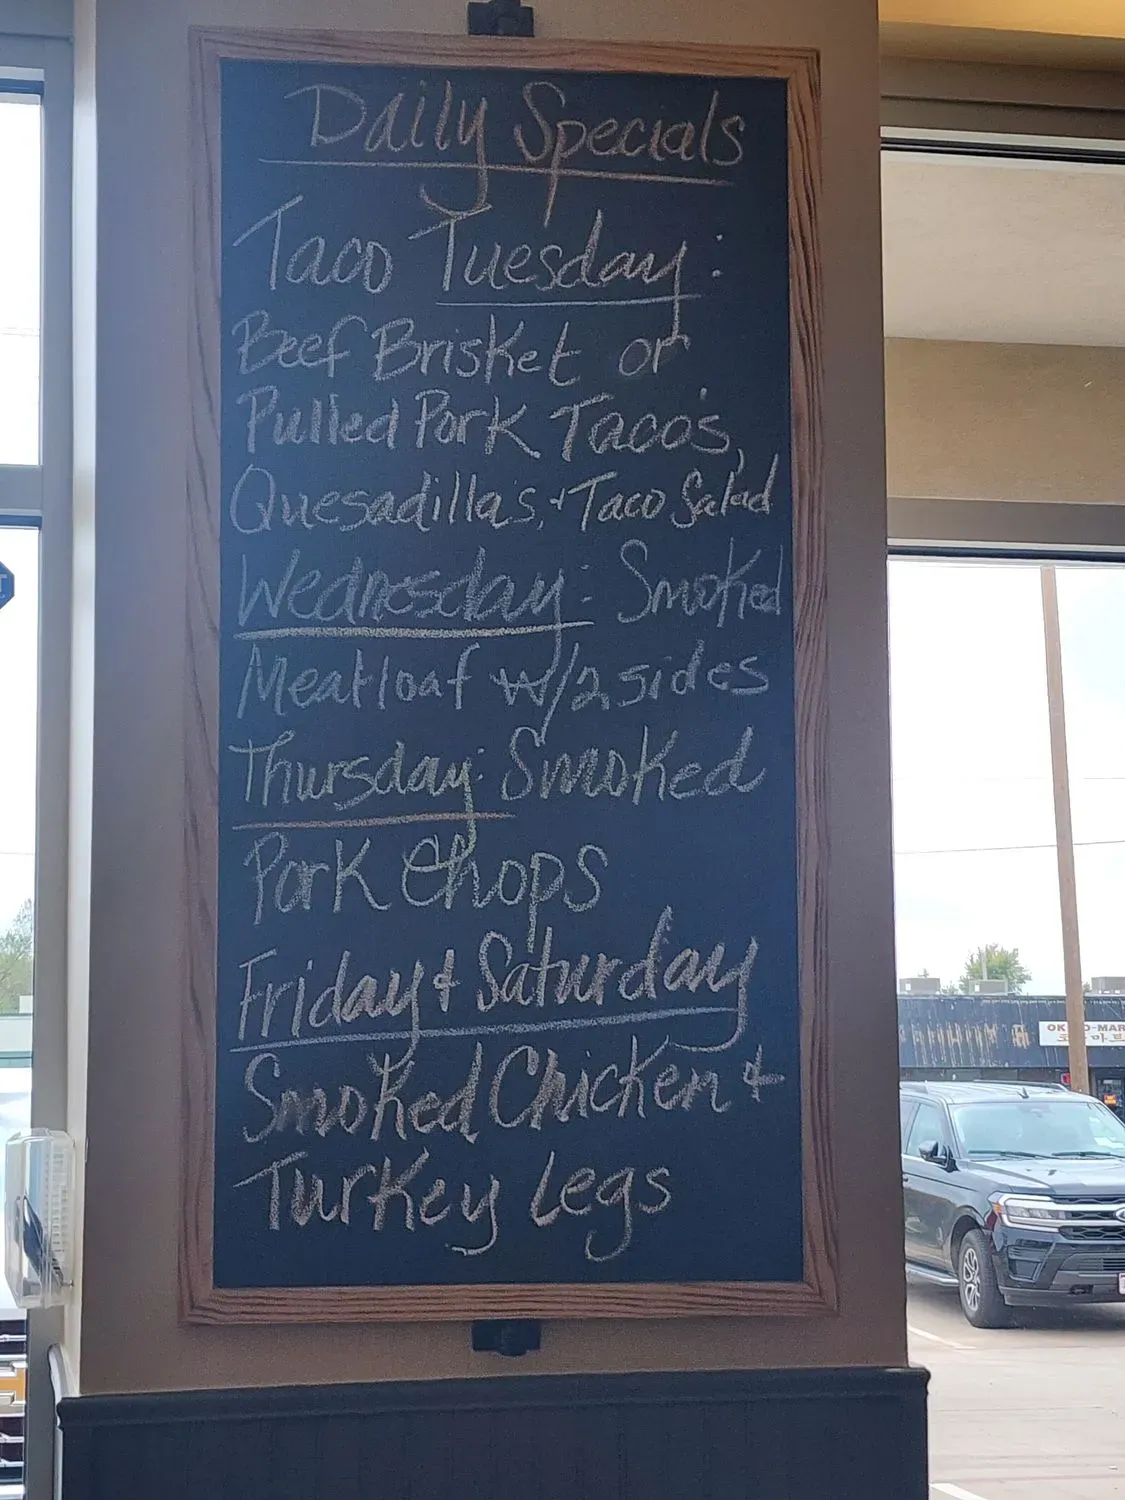 Daily Specials
Taco Tuesday:
Beef Brisket or
Pulled Pork Taco's,
Quesadilla's, + Taco Salad
Wednesday: Smoked
Meatloaf w/2 sides
Thursday: Smoked
Pork Chops
Friday + Saturday
Smoked Chicken +
Turkey Legs